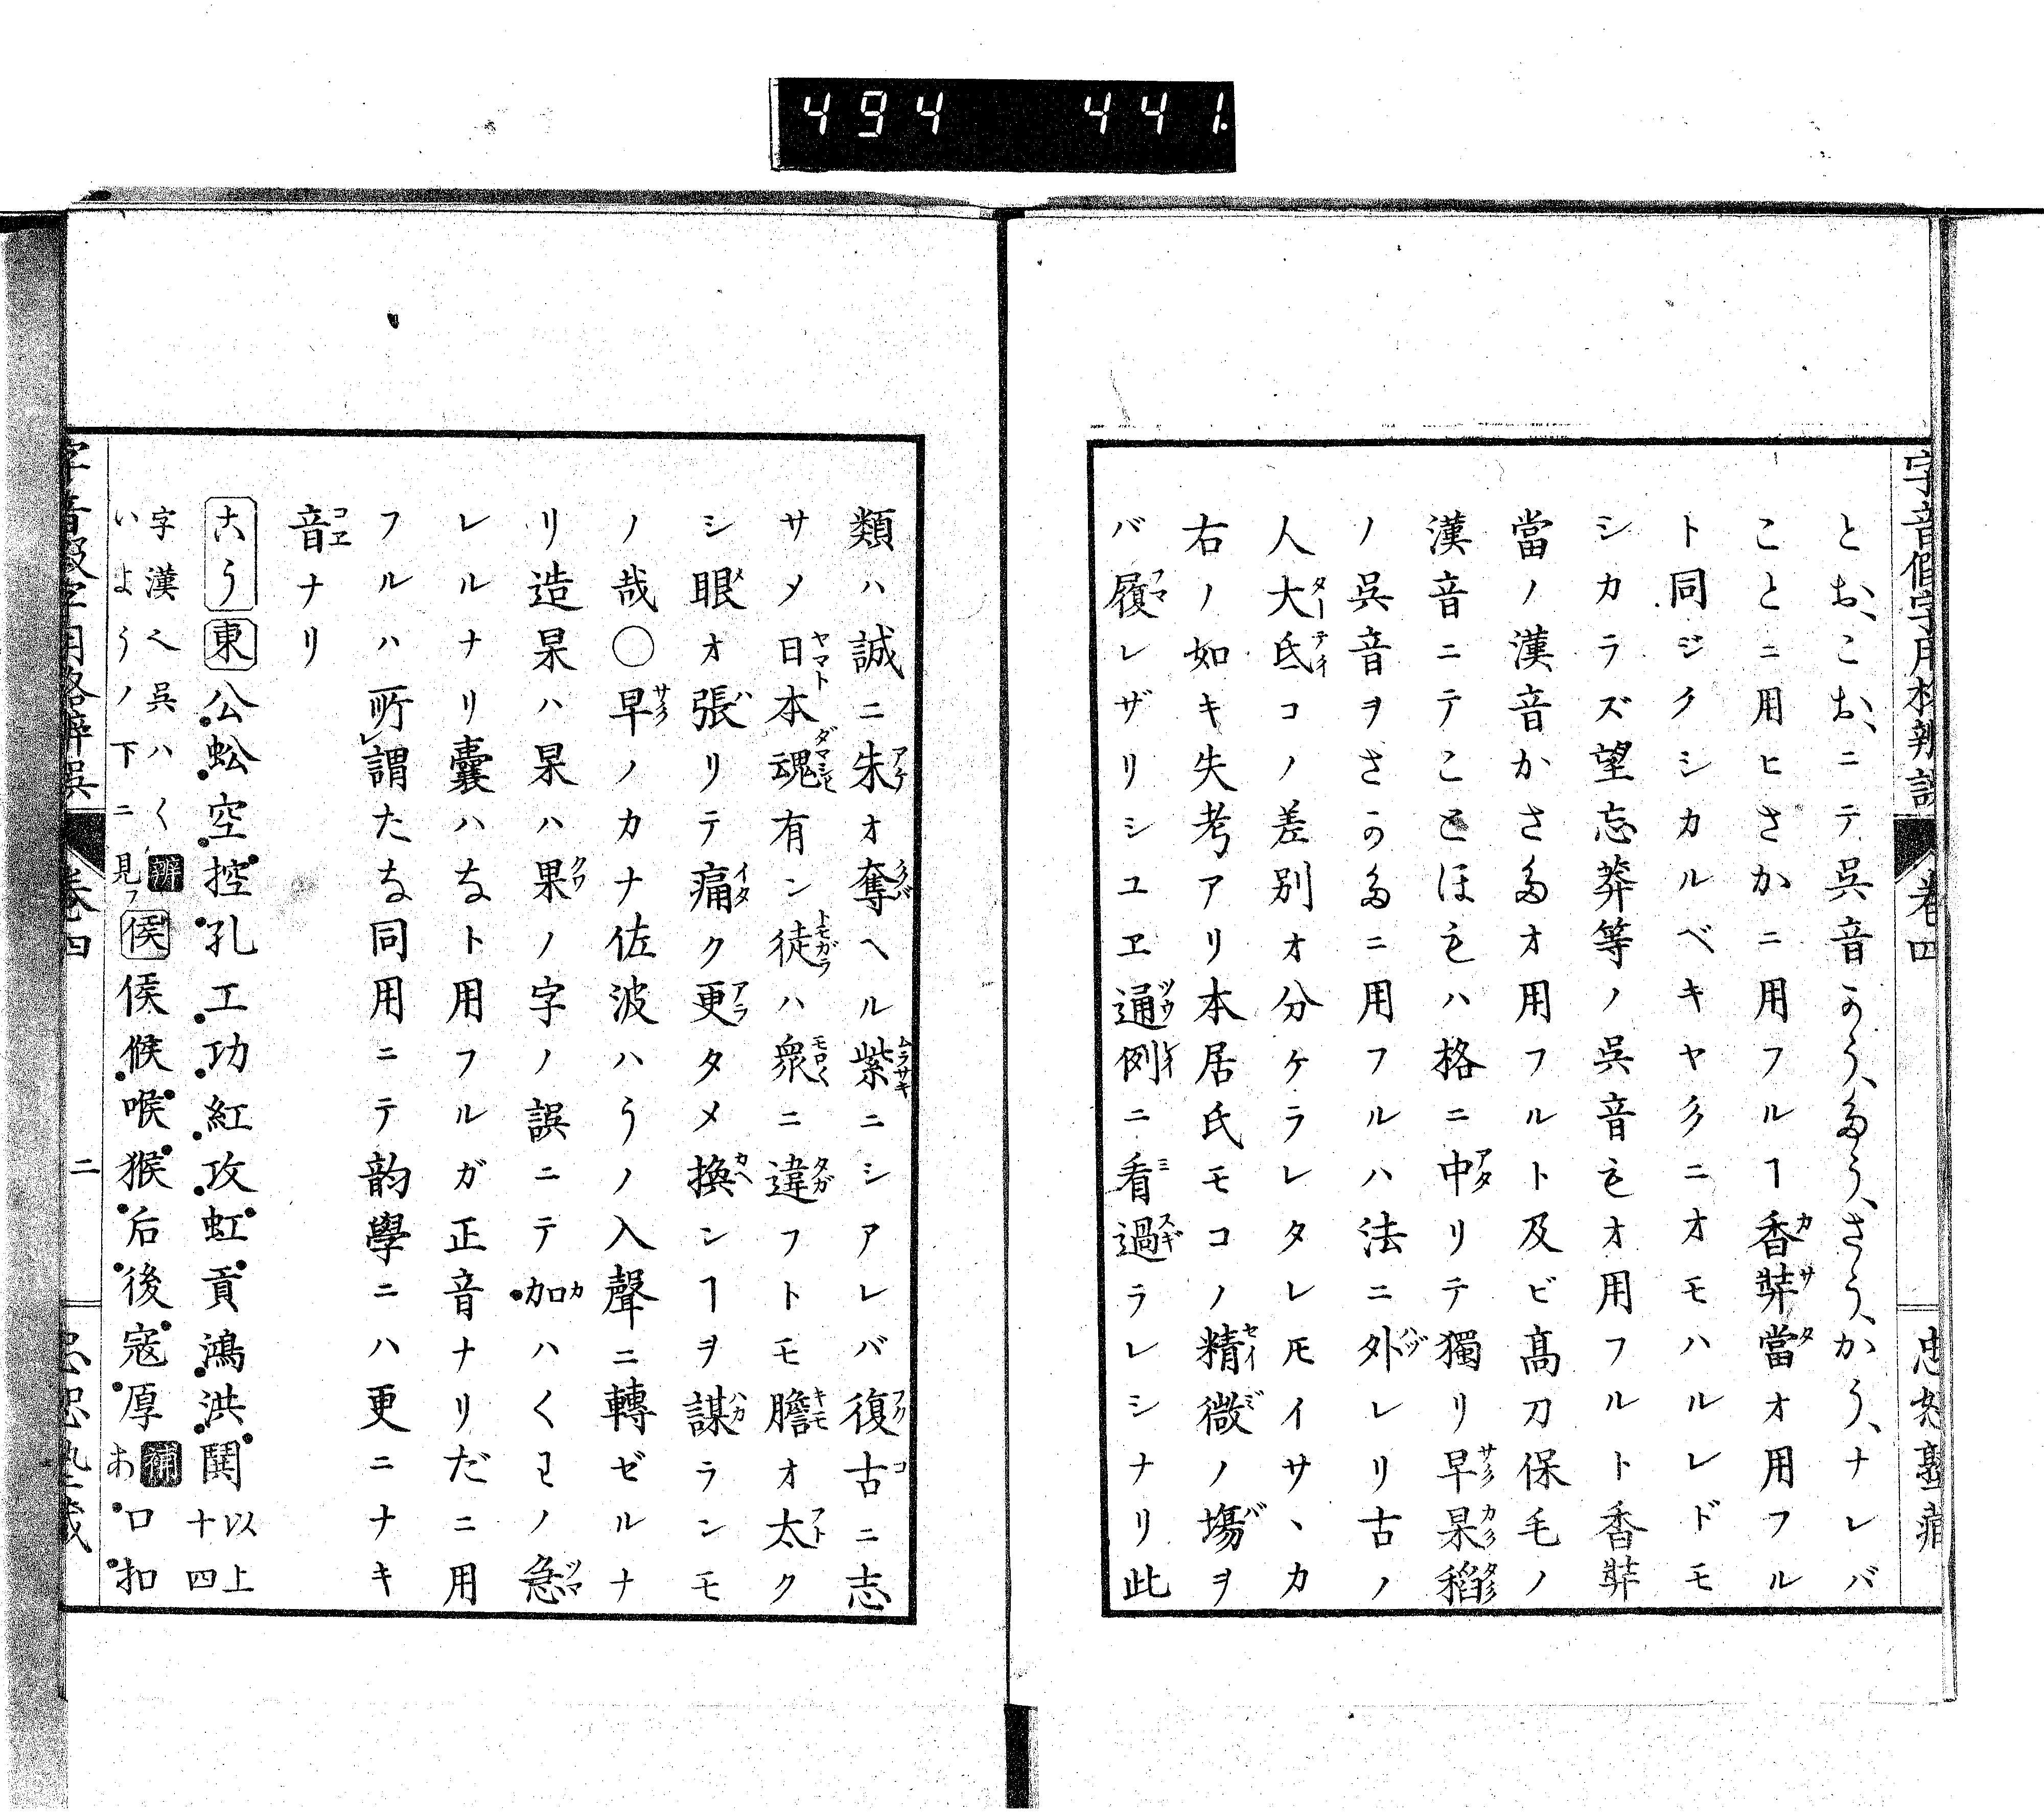 494 441.
字音假字用格辨誤 卷四
とお、こお、ニテ呉音のう、るう、さう、かう、ナレバ
ことニ用ヒさかニ用フルヿ香弉當オ用フル
ト同ジクシカルベキヤウニオモハルレドモ
シカラズ望忘莽等ノ呉音もオ用フルト香弉
當ノ漢音かさるオ用フルト及ビ高刀保毛ノ
漢音ニテこそほもハ格ニ中リテ獨リ早杲稻
ノ呉音ヲさのるニ用フルハ法ニ外レリ古ノ
人大氐コノ差別オ分ケラレタレ𪜈イサヽカ
右ノ如キ失考アリ本居氏モコノ精微ノ塲ヲ
バ履レザリシユヱ通例ニ看過ラレシナリ此
類ハ誠ニ朱オ奪ヘル紫ニシアレバ復古ニ志
サメ日本魂有ン徒ハ衆ニ違フトモ膽オ太ク
シ眼オ張リテ痛ク更タメ換ンヿヲ謀ランモ
ノ哉〇早ノカナ佐波ハうノ入聲ニ轉ゼルナ
リ造杲ハ杲ハ果ノ字ノ誤ニテ加ハくわノ急
レルナリ囊ハなト用フルガ正音ナリだニ用
フルハ所謂たな同用ニテ韵學ニハ更ニナキ
音ナリ
こう 東 公蚣空控孔工功紅攻虹貢鴻洪鬨 以上十四
字漢へ呉ハく 辨 いようノ下ニ見フ 侯 侯候喉猴后後寇厚 補 あ 口扣
卷四 二